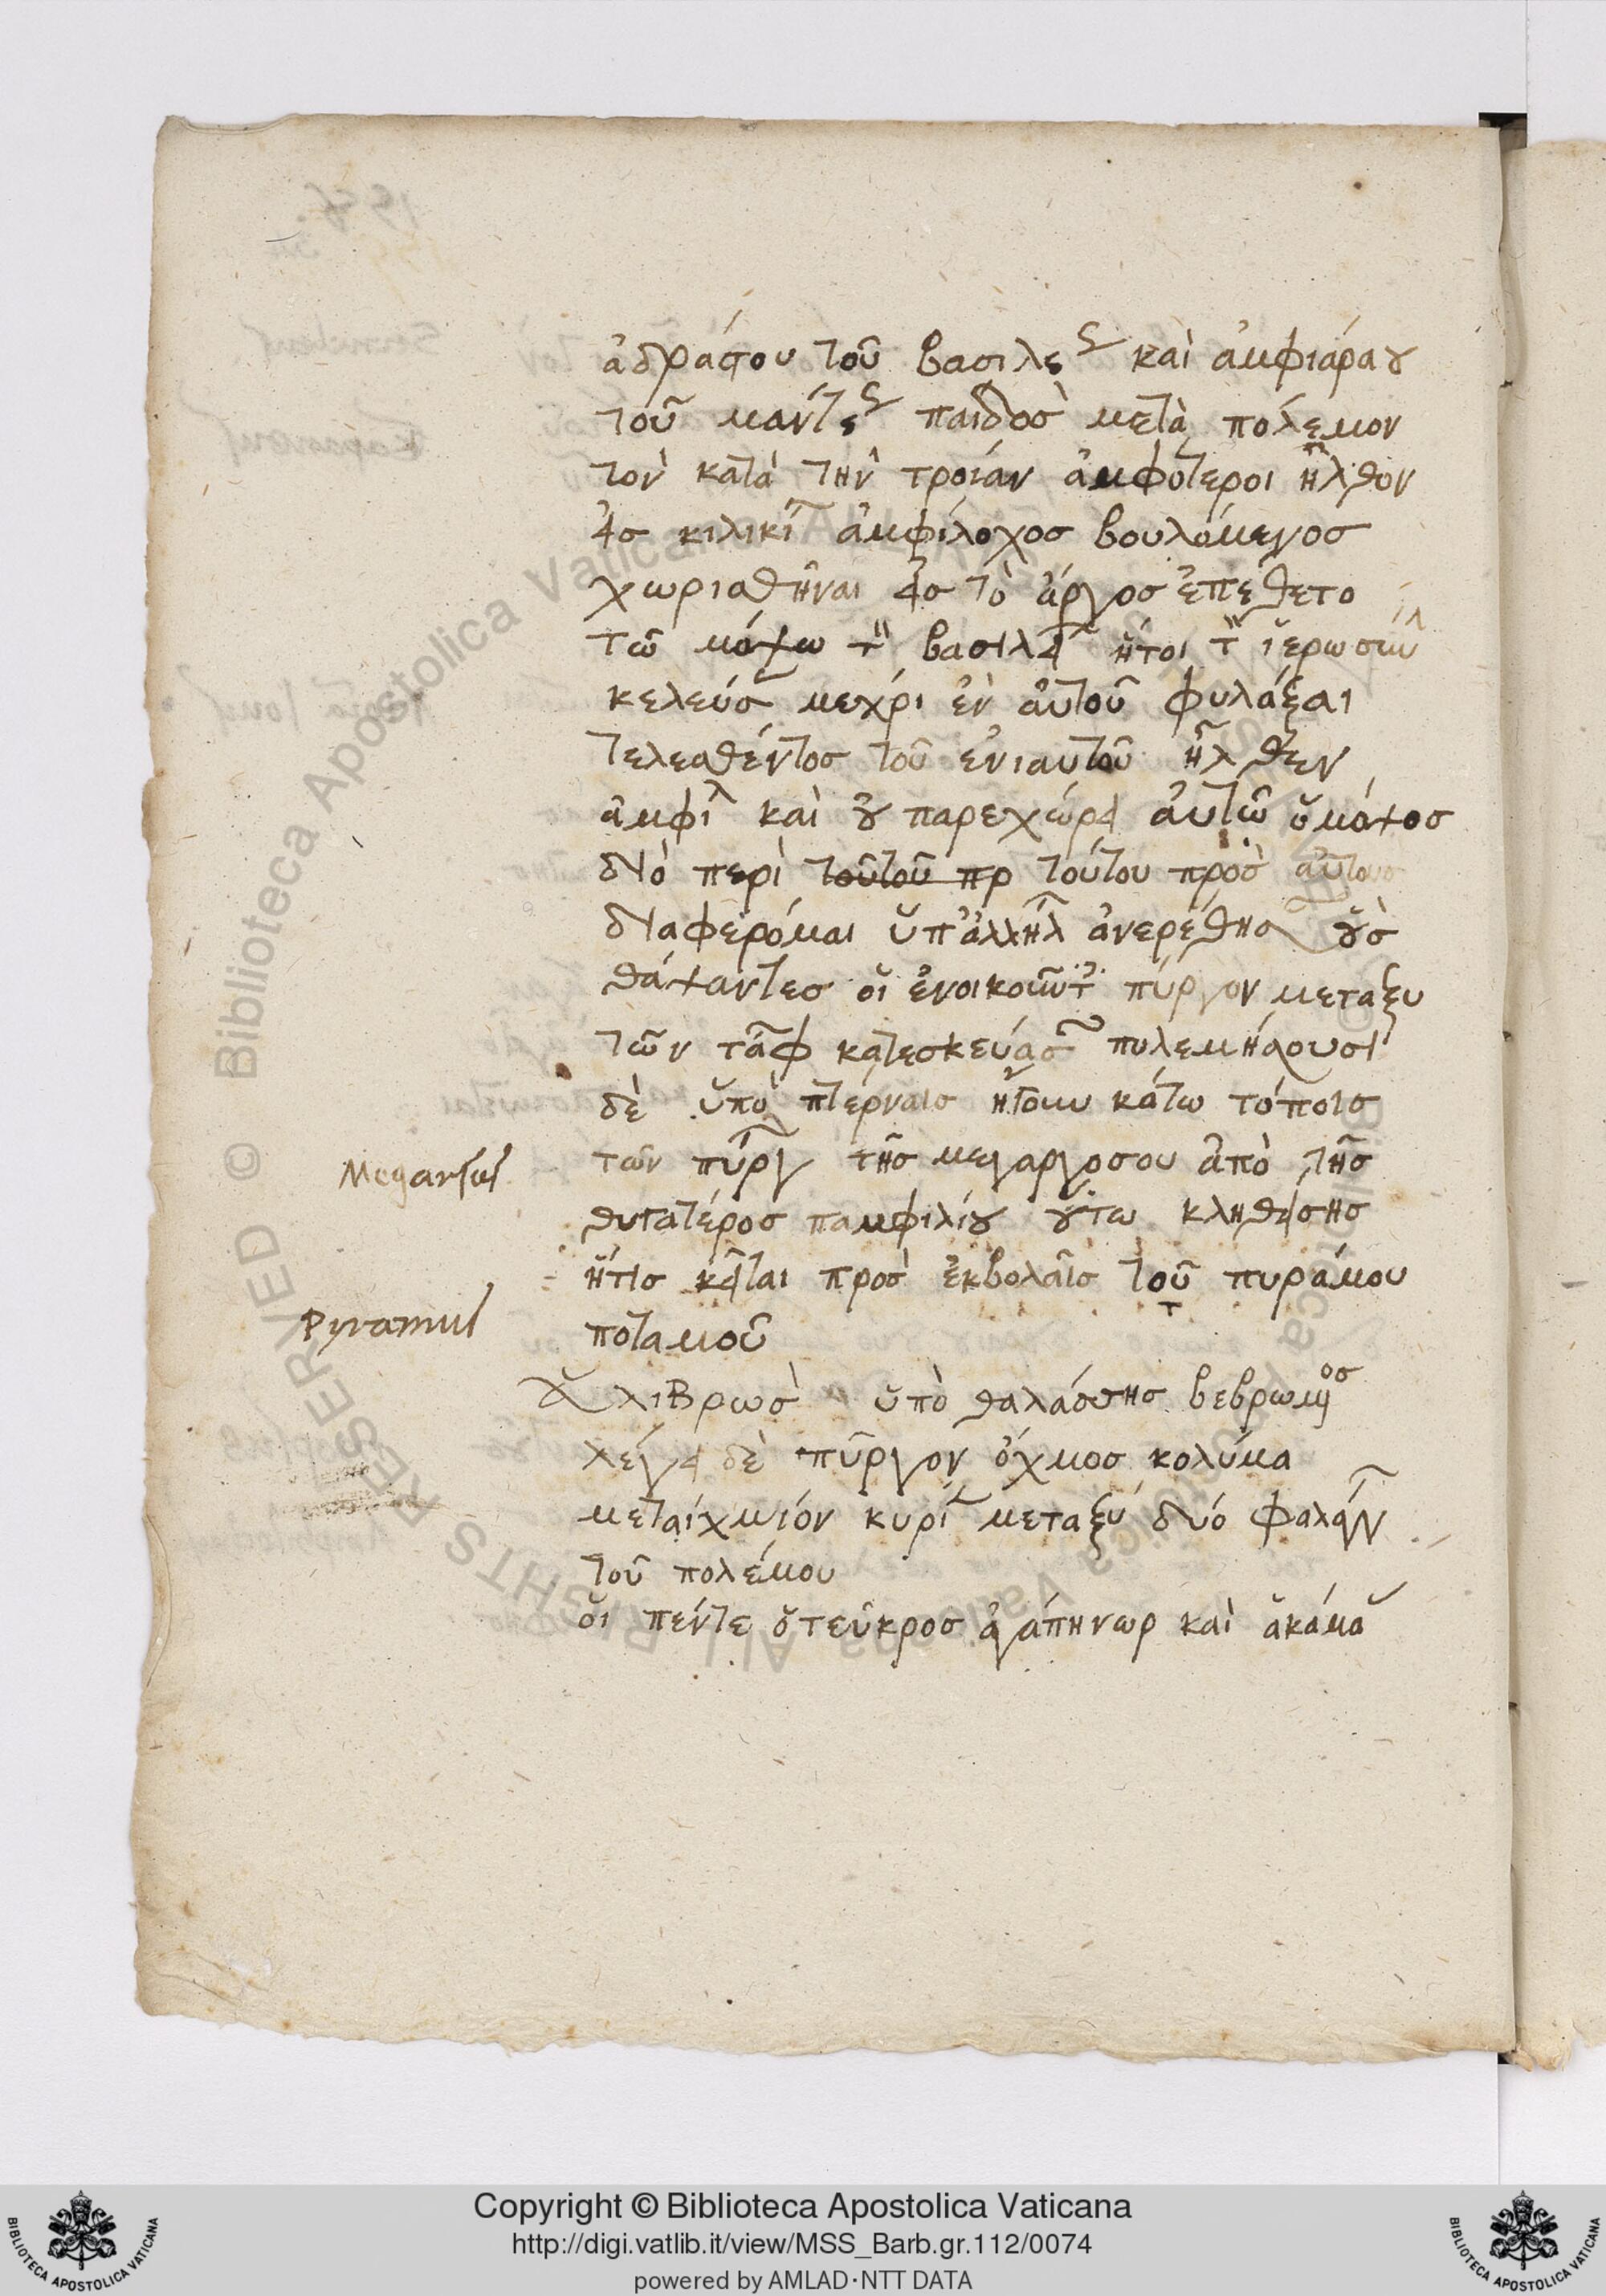 ἀδράστου τοῦ βασιλές καὶ ἀμφιάραου
τοῦ μαντές παιδοσ μετὰ πολεμον
τον κατὰ τὴν τροίαν ἀμφότεροι ἦλθον
εἰσ κιλικί ἀμφίλοχοσ βουλόμενοσ
χωρισθῆναι εἰσ τὸ ἄργοσ ἐπέθετο
τῶ μόψω τ βασιλεί ἤτοι τ ἱερωσύν
κελεύσ μεχρι ἐν αὐτοῦ φυλάξαι
τελεσθέντοσ τοῦ ἐνιαυτοῦ ἦλθεν
ἀμφιλ καὶ οὐ παρεχώρει αὐτῶ ὁ μόψοσ
διὸ περὶ τοῦτοῦ πρ τούτου πρὸσ αὐτουσ
διαφερόμαι ὑπ ἀλλήλ ἀνερέθησ οὓσ
θάψαντεσ οἱ ἐνοικοῦντ πύργον μεταξυ
τῶν τάφ κατεσκεύασ
δὲ ὑπὸ πτέρναισ ἤτοιν κάτω τόποισ
τῶν πύργ τῆσ μεγαργοσου ἀπὸ τῆσ
θυγατέροσ παμφιλίου οὕτω κληθείσησ
ἥτισ κεῖται πρὸσ ἐκβολαῖσ τοῦ πυράμου
ποταμοῦ
ἁλιβρωσ ὑπὸ θαλάσσησ βεβρωμένοσ
λέγει δὲ πῦργον ὄχμοσ κολύμα
μεταίχμιόν κυρί μεταξύ δυό φαλάγγ
τοῦ πολέμου
οἱ πέντε ὁ τεῦκροσ ἀγάπηνωρ καὶ ἀκάμα
Megarsus
Pyramus
Biblioteca Apostolica Vaticana ALL RIGHTS RESERVED ©
Copyright © Biblioteca Apostolica Vaticana
http://digi.vatlib.it/view/MSS_Barb.gr.112/0074
powered by AMLAD·NTT DATA
BIBLIOTECA APOSTOLICA VATICANA
BIBLIOTECA APOSTOLICA VATICANA